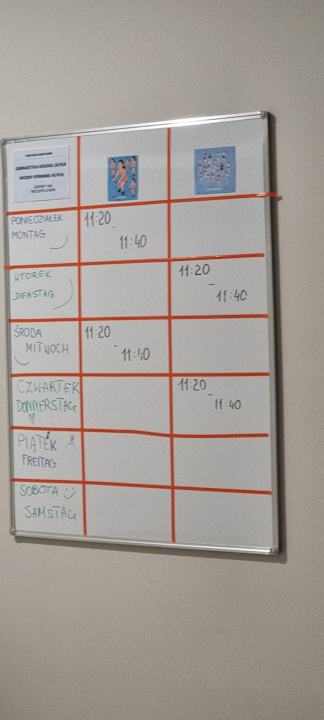 GIMNASTYKA WODNA 20 PLN
WODNY SPINNING 40 PLN
ZAPISY NA
RECEPCJI SPA
PONIEDZIAŁEK
MONTAG
11:20 -
11:40
WTOREK
DIENSTAG
11:20
- 11:40
ŚRODA
MITWOCH
11:20
- 11:40
CZWARTEK
DONNERSTAG
11:20
- 11:40
PIĄTEK
FREITAG
SOBOTA
SAMSTAG